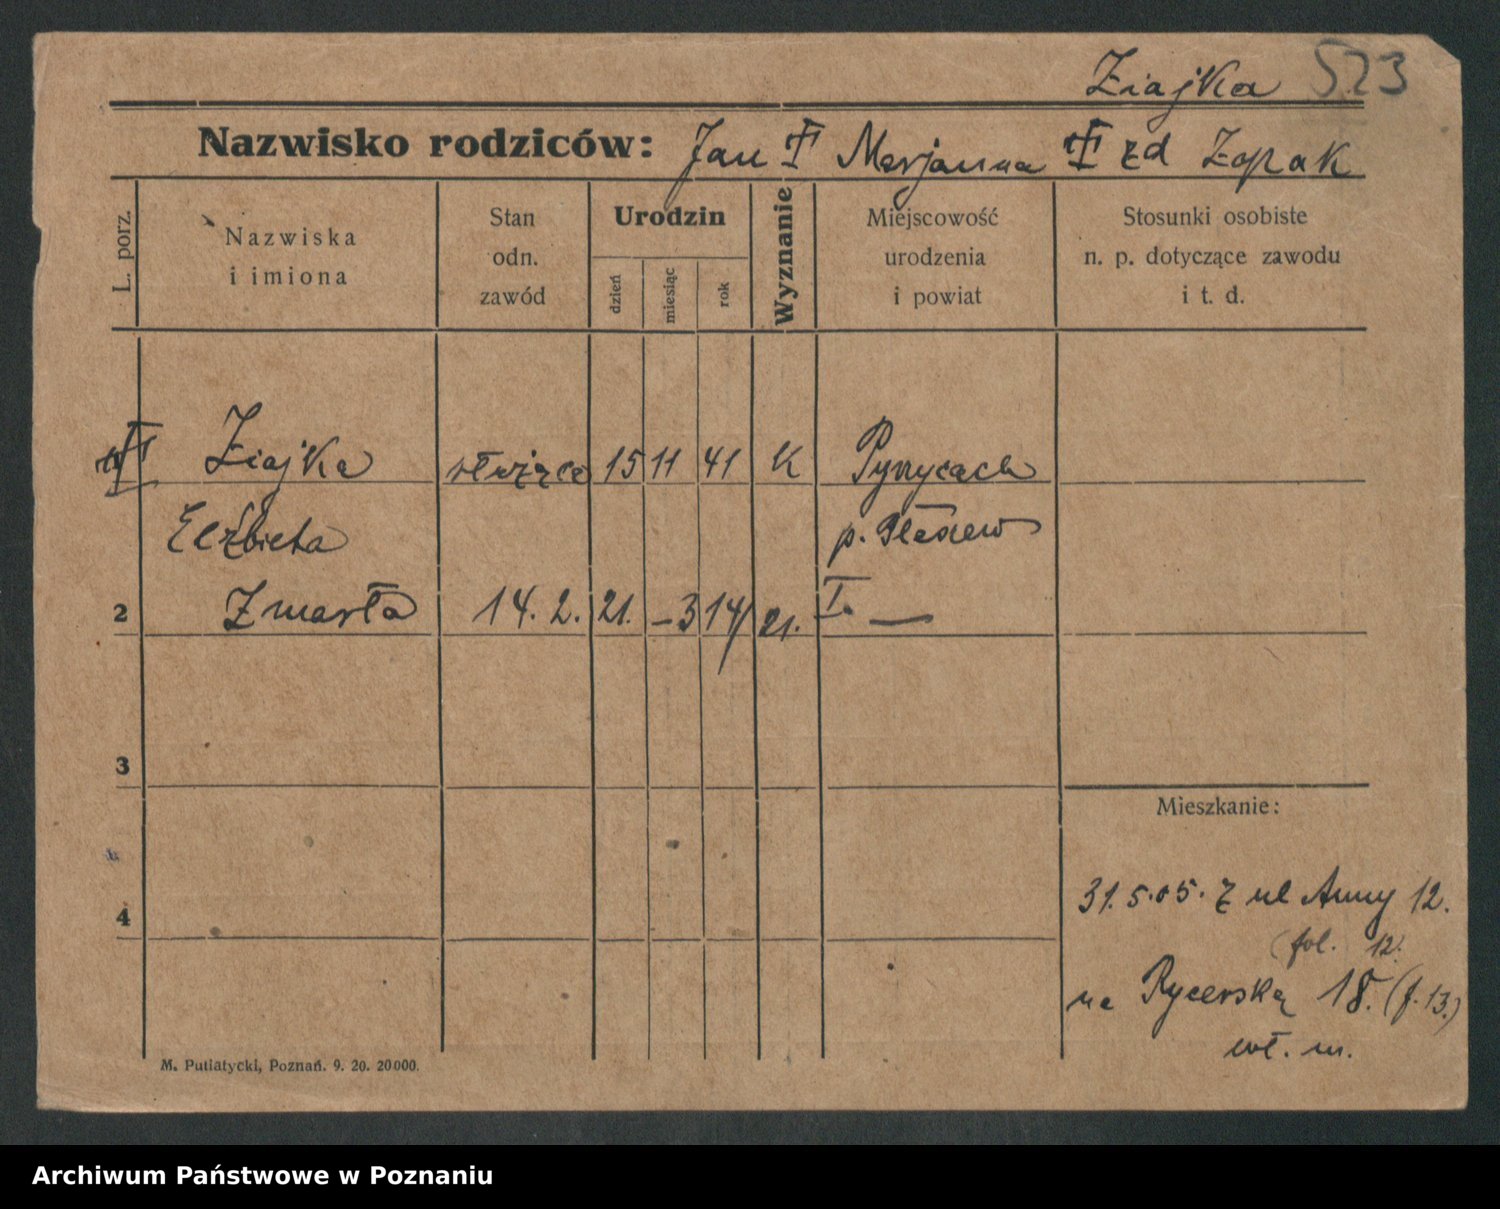 Ziajka 523
Nazwisko rodziców: Jan Marjanna zd Zopak
L. porz.
Nazwiska
i imiona
Stan
odn.
zawód
Urodzin
dzień
miesiąc
rok
Wyznanie
Miejscowość
urodzenia
i powiat
Stosunki osobiste
n. p. dotyczące zawodu
i t. d.
Ziajka służąca 15 11 41 K
Elżbieta p. Pleszew
2 Zmarła 14. 2. 21. – 3 14/ 21. I. —
3
Mieszkanie:
4
31. 5. 05. Z ul Anny 12.
(fol. 12.
na Rycerską 18. (f. 13.)
wł. m.
M. Putiatycki, Poznań. 9. 20. 20000.
Archiwum Państwowe w Poznaniu